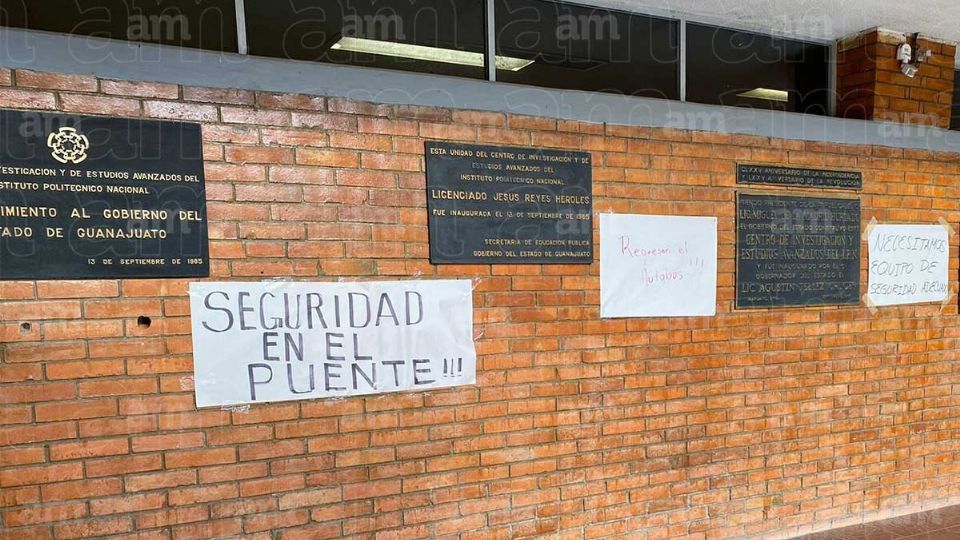 VESTIGACIÓN Y DE ESTUDIOS AVANZADOS DEL
NSTITUTO POLITECNICO NACIONAL
IMIENTO AL GOBIERNO DEL
TADO DE GUANAJUATO
13 DE SEPTIEMBRE DE 1985
SEGURIDAD
EN EL
PUENTE !!!
ESTA UNIDAD DEL CENTRO DE INVESTIGACION Y DE
ESTUDIOS AVANZADOS DEL
INSTITUTO POLITECNICO NACIONAL
LICENCIADO JESUS REYES HEROLES
FUE INAUGURADA EL 13 DE SEPTIEMBRE DE 1985
SECRETARIA DE EDUCACION PUBLICA
GOBIERNO DEL ESTADO DE GUANAJUATO
Regresen el
Autobus !!!
CLXXV ANIVERSARIO DE LA INDEPENDENCIA
Y LXXV ANIVERSARIO DE LA REVOLUCION
CENTRO DE INVESTIGACION Y
ESTUDIOS AVANZADOS DEL I.P.N.
Y FUE INAUGURADO POR EL
GOBERNADOR DEL ESTADO
NECESITAMOS
EQUIPO DE
SEGURIDAD
am